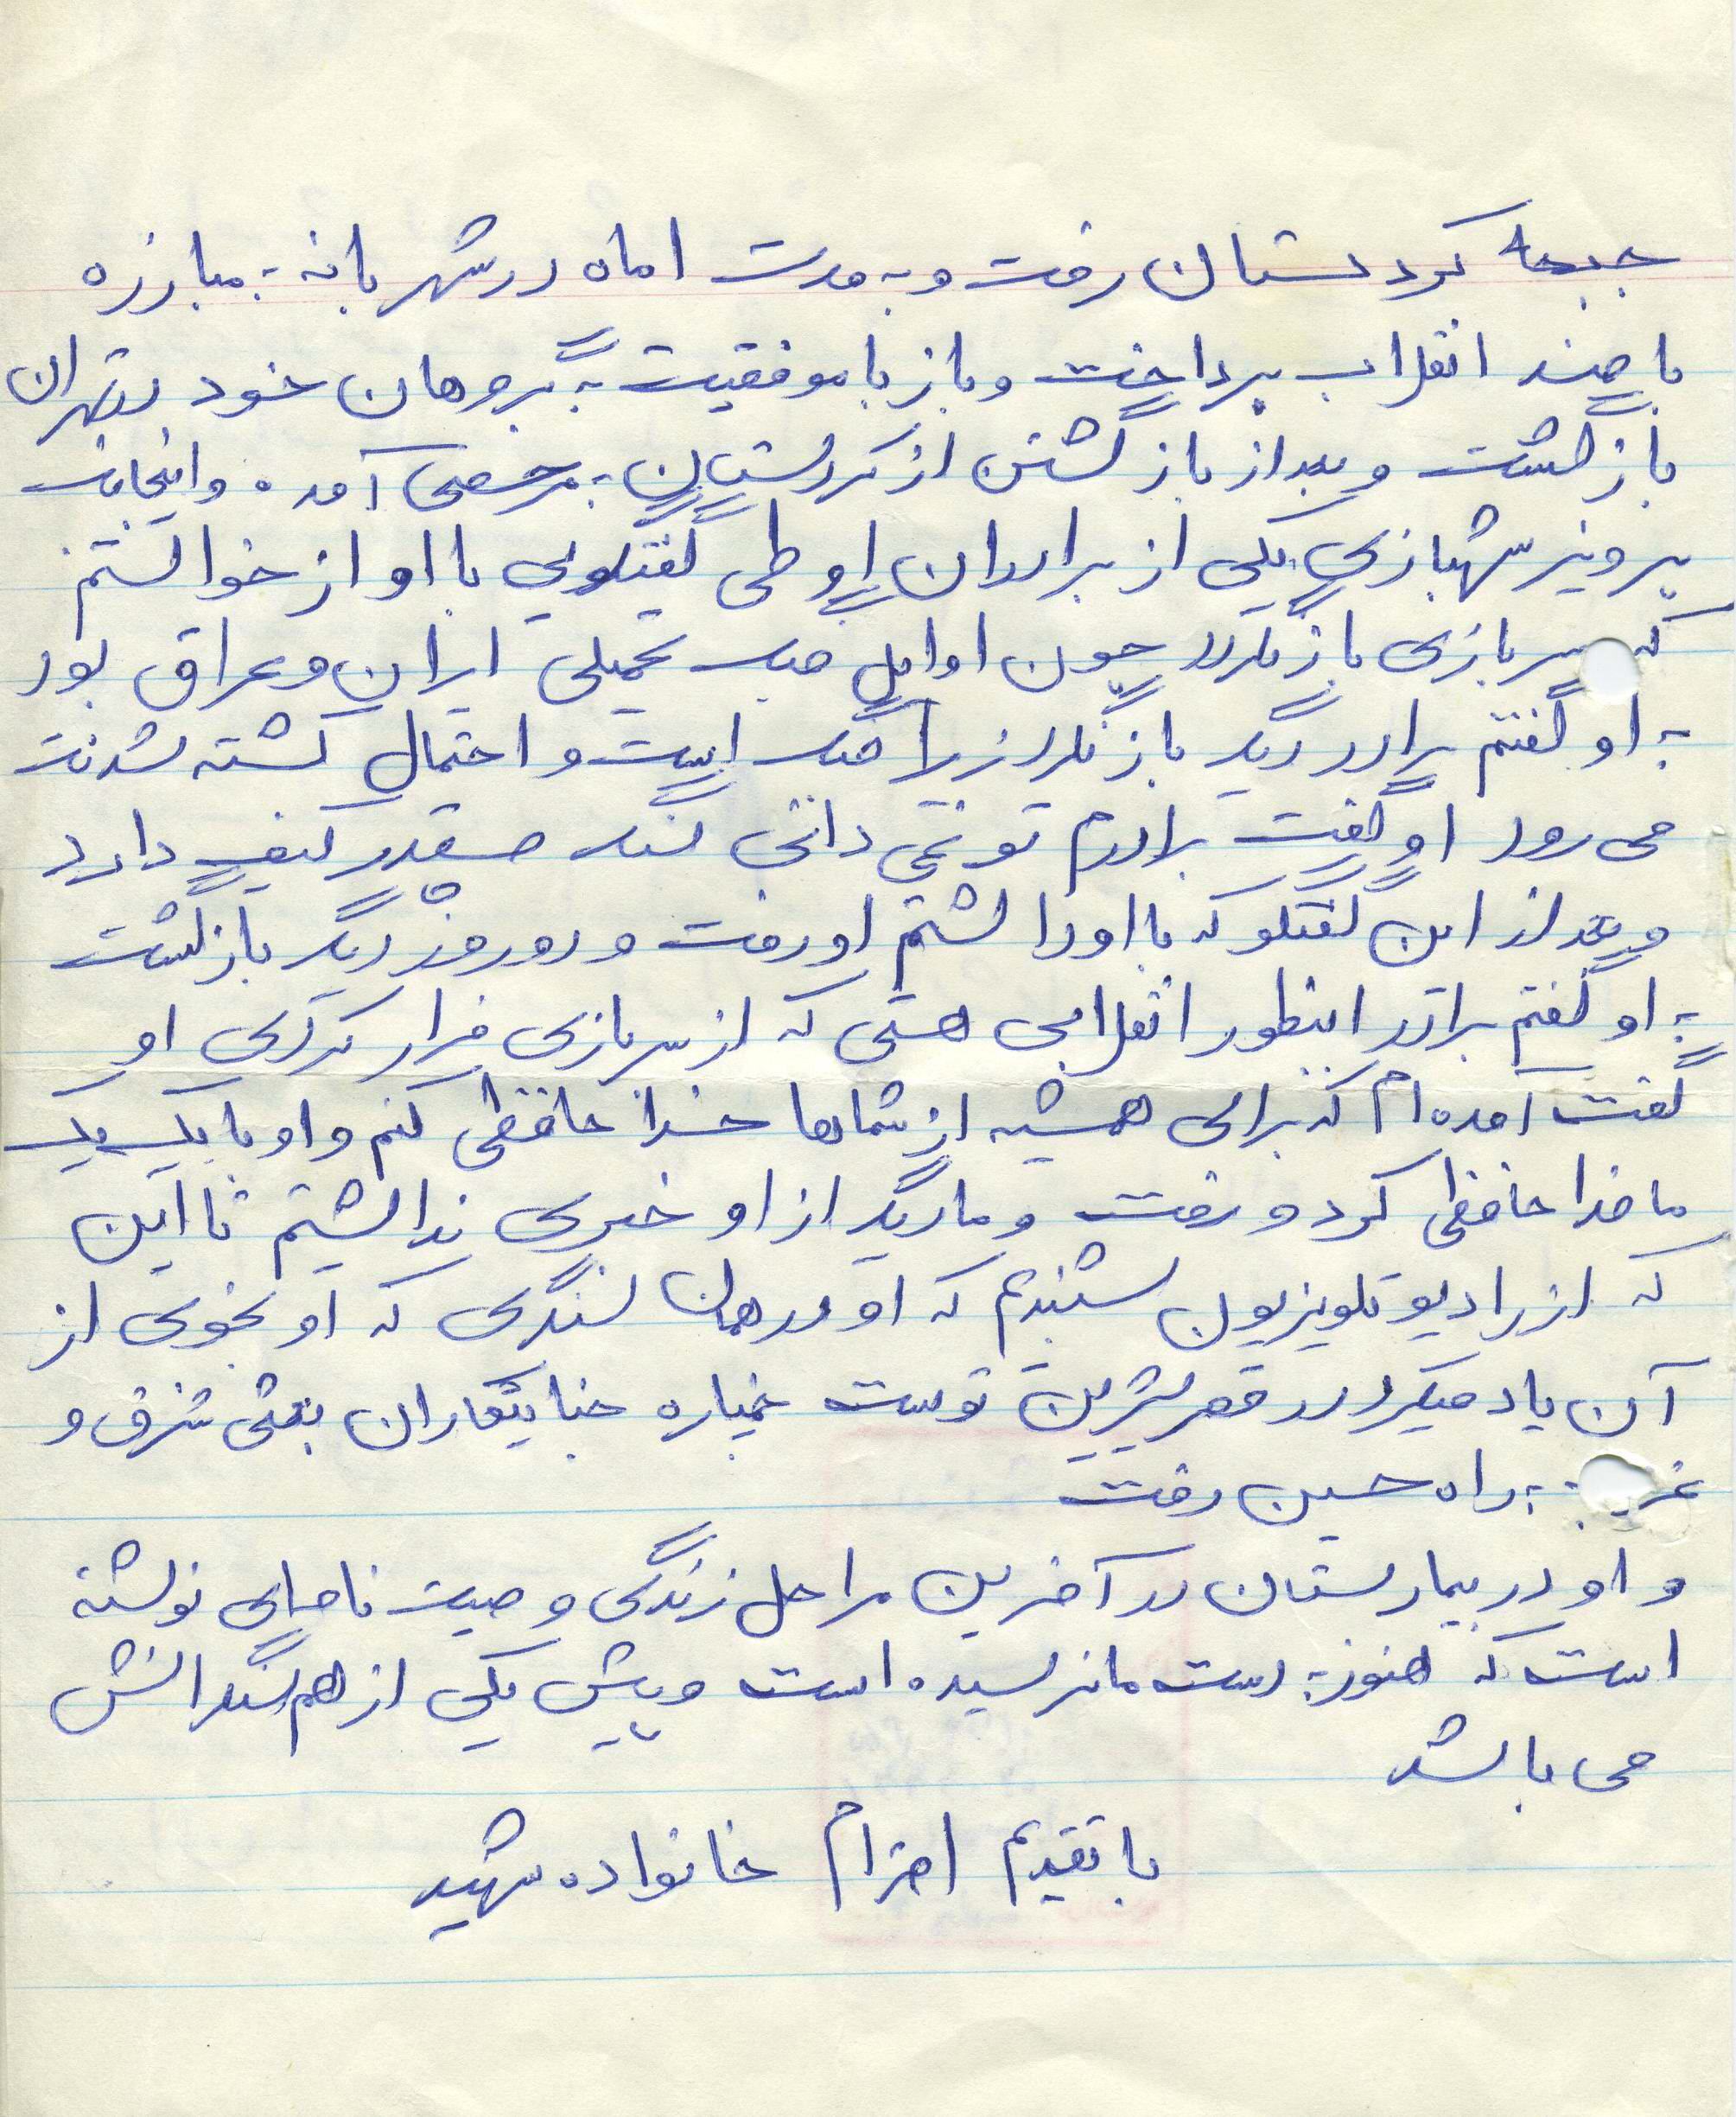 جبحه کردستان رفت و به مدت ۱ماه در شهر بانه به مبارزه
با ضد انقلاب پرداخت و باز با موفقیت به گروهان خود بتهران
بازگشت و بعد از بازگشتن از کردستان به مرخصی آمده و اینجانب
پرویز شهبازی یکی از برادران او طی گفتگویی با او از خواستم
که سربازی بازنگردد چون اوایل جنگ تحمیلی ایران و عراق بود
به او گفتم برادر دیگر بازنگرد زیرا جنگ است و احتمال کشته شدنت
می رود او گفت برادرم تو نمی دانی سنگر چقدر کیف دارد
و بعد از این گفتگو که با او داشتم او رفت و دو روز دیگر بازگشت
به او گفتم برادر اینطور انقلابی هستی که از سربازی فرار کردی او
گفت آمده ام که برای همیشه از شماها خدا حافظی کنم و او با یک یک
ما خدا حافظی کرد و رفت و ما دیگر از او خبری نداشتیم تا این
که از رادیو تلویزیون شنیدیم که او در همان سنگری که او بخوبی از
آن یاد میکرد در قصر شیرین توست خمپاره جنایتکاران بعثی شرق و
غرب به راه حسین رفت
و او در بیمارستان در آخرین مراحل زندگی وصیت نامه‌ای نوشته
است که هنوز به دست ما نرسیده است و پیش یکی از هم سنگرانش
می باشد
با تقدیم احترام خانواده شهید